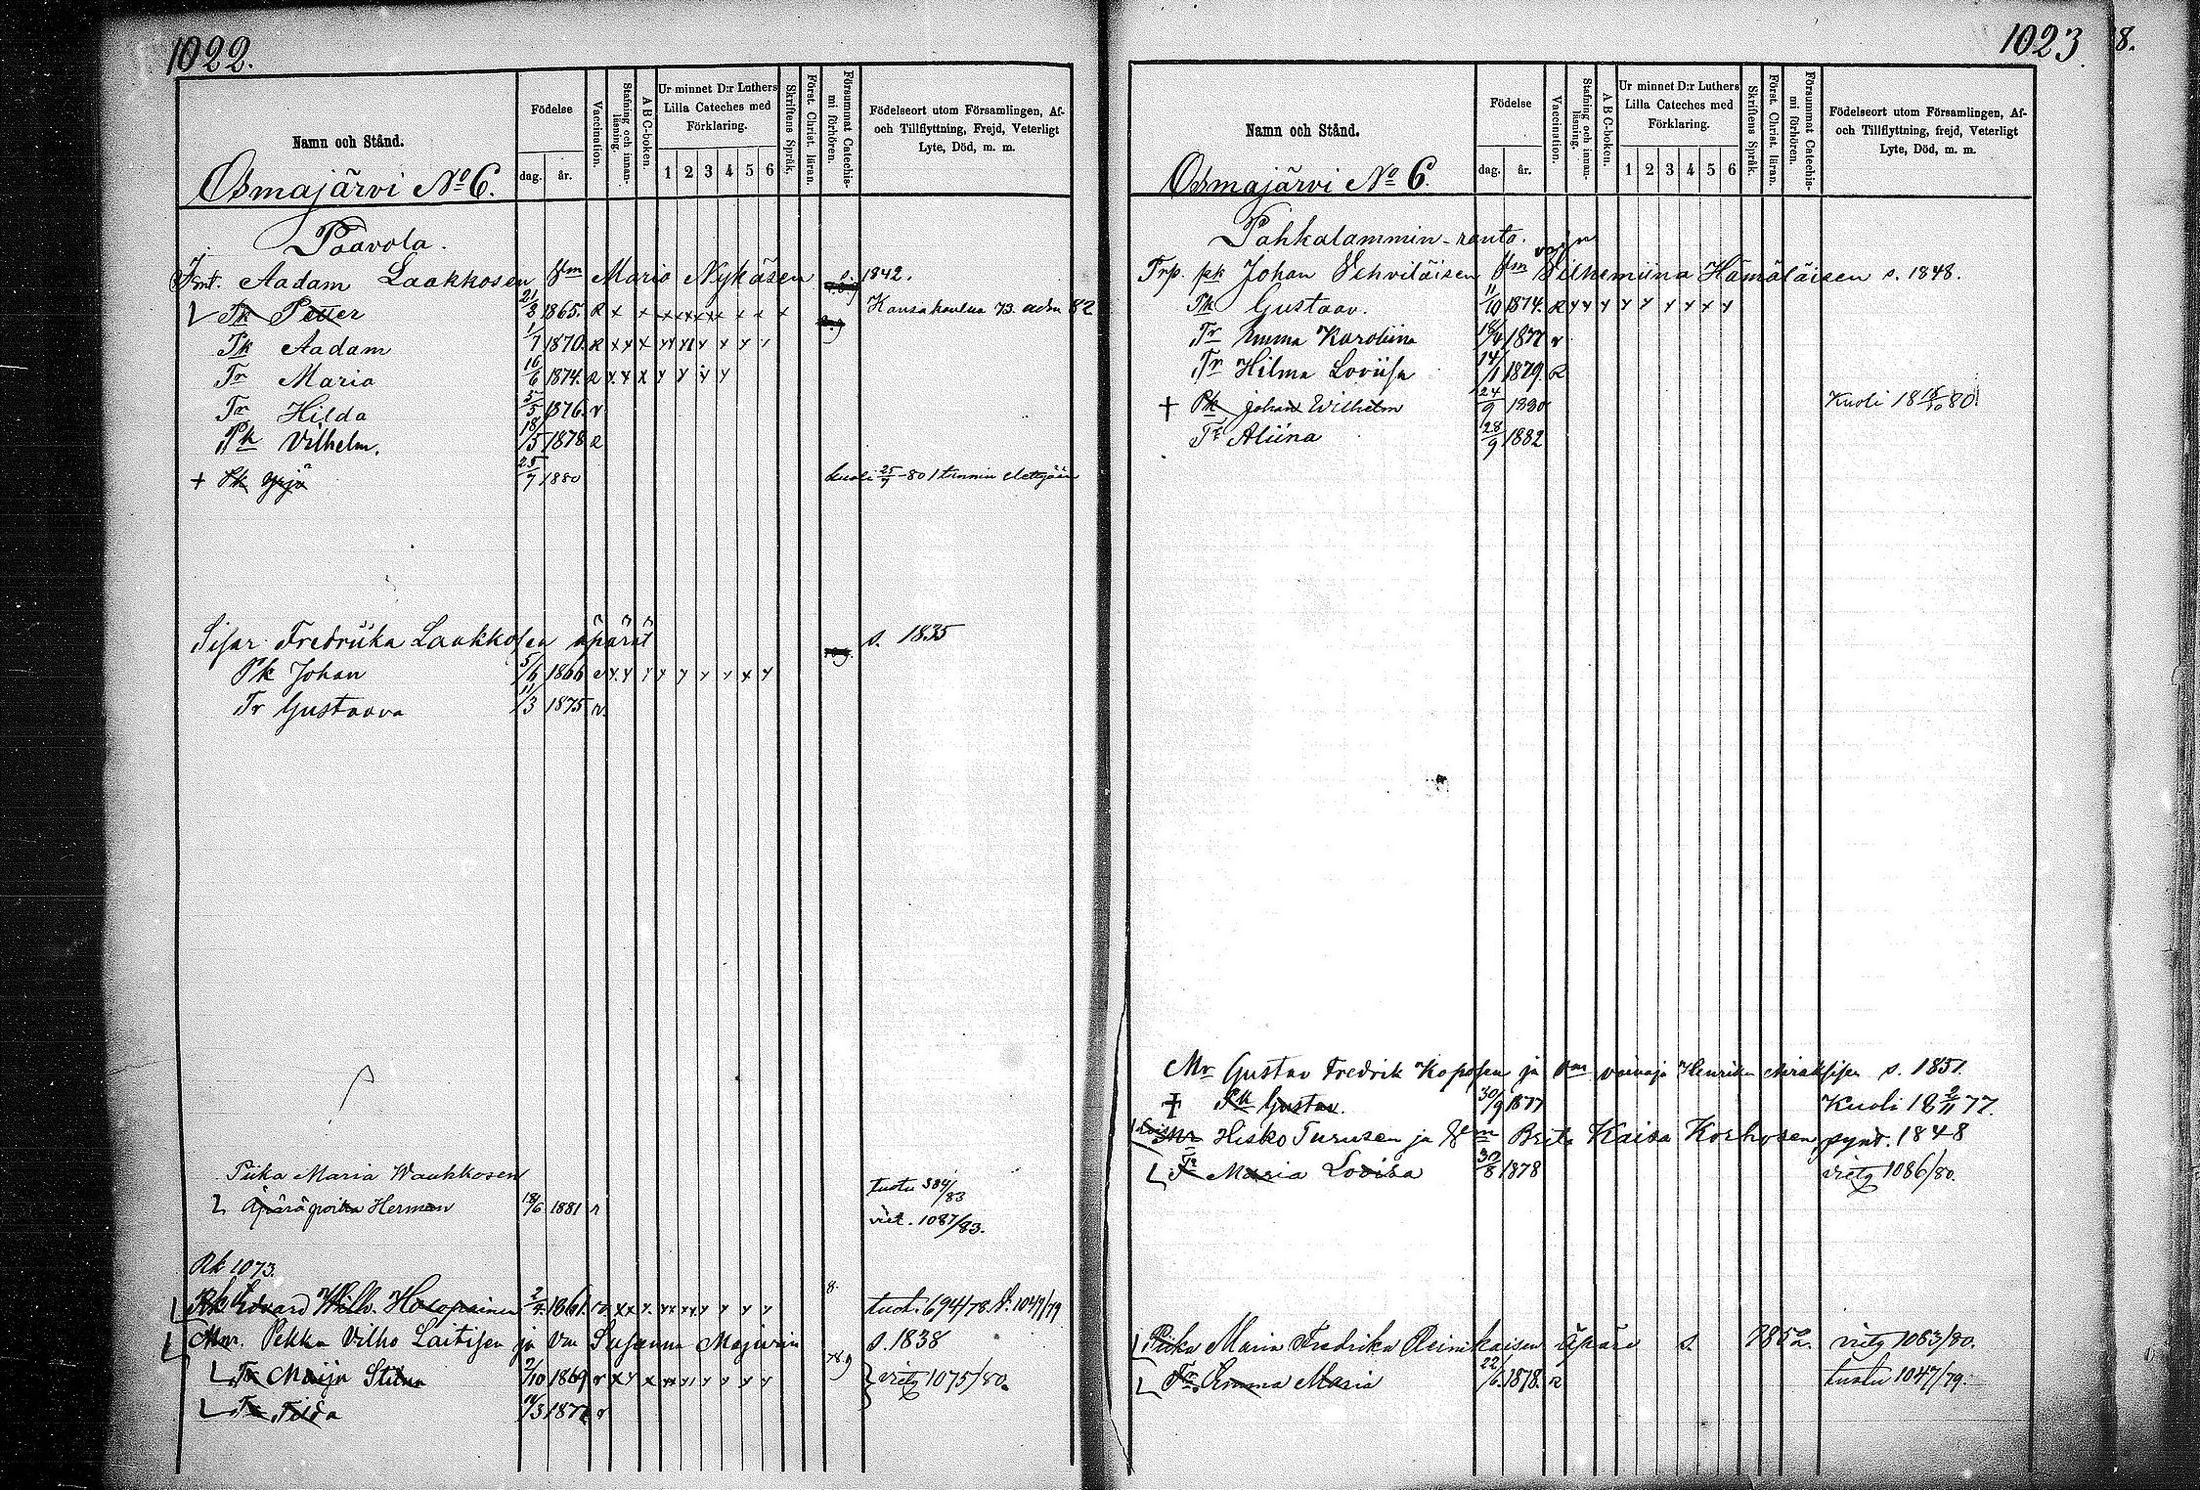 1022.
Namn och Stånd.
Födelse
dag. år.
Vaccination.
Stafning och innan-läsning.
A B C-boken.
Ur minnet D:r Luthers
Lilla Cateches med
Förklaring.
1 2 3 4 5 6
Skriftens Språk.
Först. Christ. läran.
Försummat Catechis-mi förhören.
Födelseort utom Församlingen, Af-
och Tillflyttning, Frejd, Veterligt
Lyte, Död, m. m.
Osmajärvi No 6.
Paavola.
Aadam Laakkosen Vm Maria Nykäsen s. 1842.
Pk Petter 21/2 1865. R Kansakoulua 73. 82
Pk Aadam 1/7 1870. R
Tr Maria 16/6 1874. R
Tr Hilda 5/5 1876. r
Pk Vilhelm. 18/5 1878 R
+ Pk Yrjö 25/7 1880 kuoli 25/7 -80
Sisar Fredrika Laakkosen äpärät s. 1835
Pk Johan 5/6 1866
Tr Gustaava 11/3 1875 r.
Piika Maria Waukkosen tuotu 384/83
Äpäräpoika Herman 18/6 1881 r viet. 1087/83.
Rk 1073.
Rk Edvard Wilh. Holopainen 1861. tuot. 694/78. 1047/79
Mr. Pekka Vilho Laitisen ja Vm Susanna s. 1838
Tr Maija Stiina 2/10 1869 r viety 1075/80.
Tr Tilda
1023.
8.
Namn och Stånd.
Födelse
dag. år.
Vaccination.
Stafning och innan-läsning.
A B C-boken.
Ur minnet D:r Luthers
Lilla Cateches med
Förklaring.
1 2 3 4 5 6
Skriftens Språk.
Först. Christ. läran.
Försummat Catechis-mi förhören.
Födelseort utom Församlingen, Af-
och Tillflyttning, frejd, Veterligt
Lyte, Död, m. m.
Osmajärvi No 6.
Pahkalammin-ranta.
Trp. pk Johan Vehviläisen Vm Vilhemiina Hämäläisen s. 1848.
Pk Gustaav. 11/10 1874. R
Tr Emma Karoliina 1877 r
Tr Hilma Loviisa 14/1 1879. R
+ Pk Johan Wilhelm 24/9 1880 Kuoli 18 18/10 80
Tr Aliina 28/9 1882
Mr Gustav Fredrik Koposen ja Vm s. 1851.
+ Pk Gustav. 30/9 1877 Kuoli 18 2/11 77.
Hisko Turusen ja Vm Brita Kaisa Korhosen synt. 1848
Tr Maria Lovisa 30/8 1878 viety 1086/80.
Piika Maria Fredrika Reinikaisen äpärä s. 1852. viety 1083/80.
Tr. Emma Maria 22/6 1878. R tuotu 1047/79.